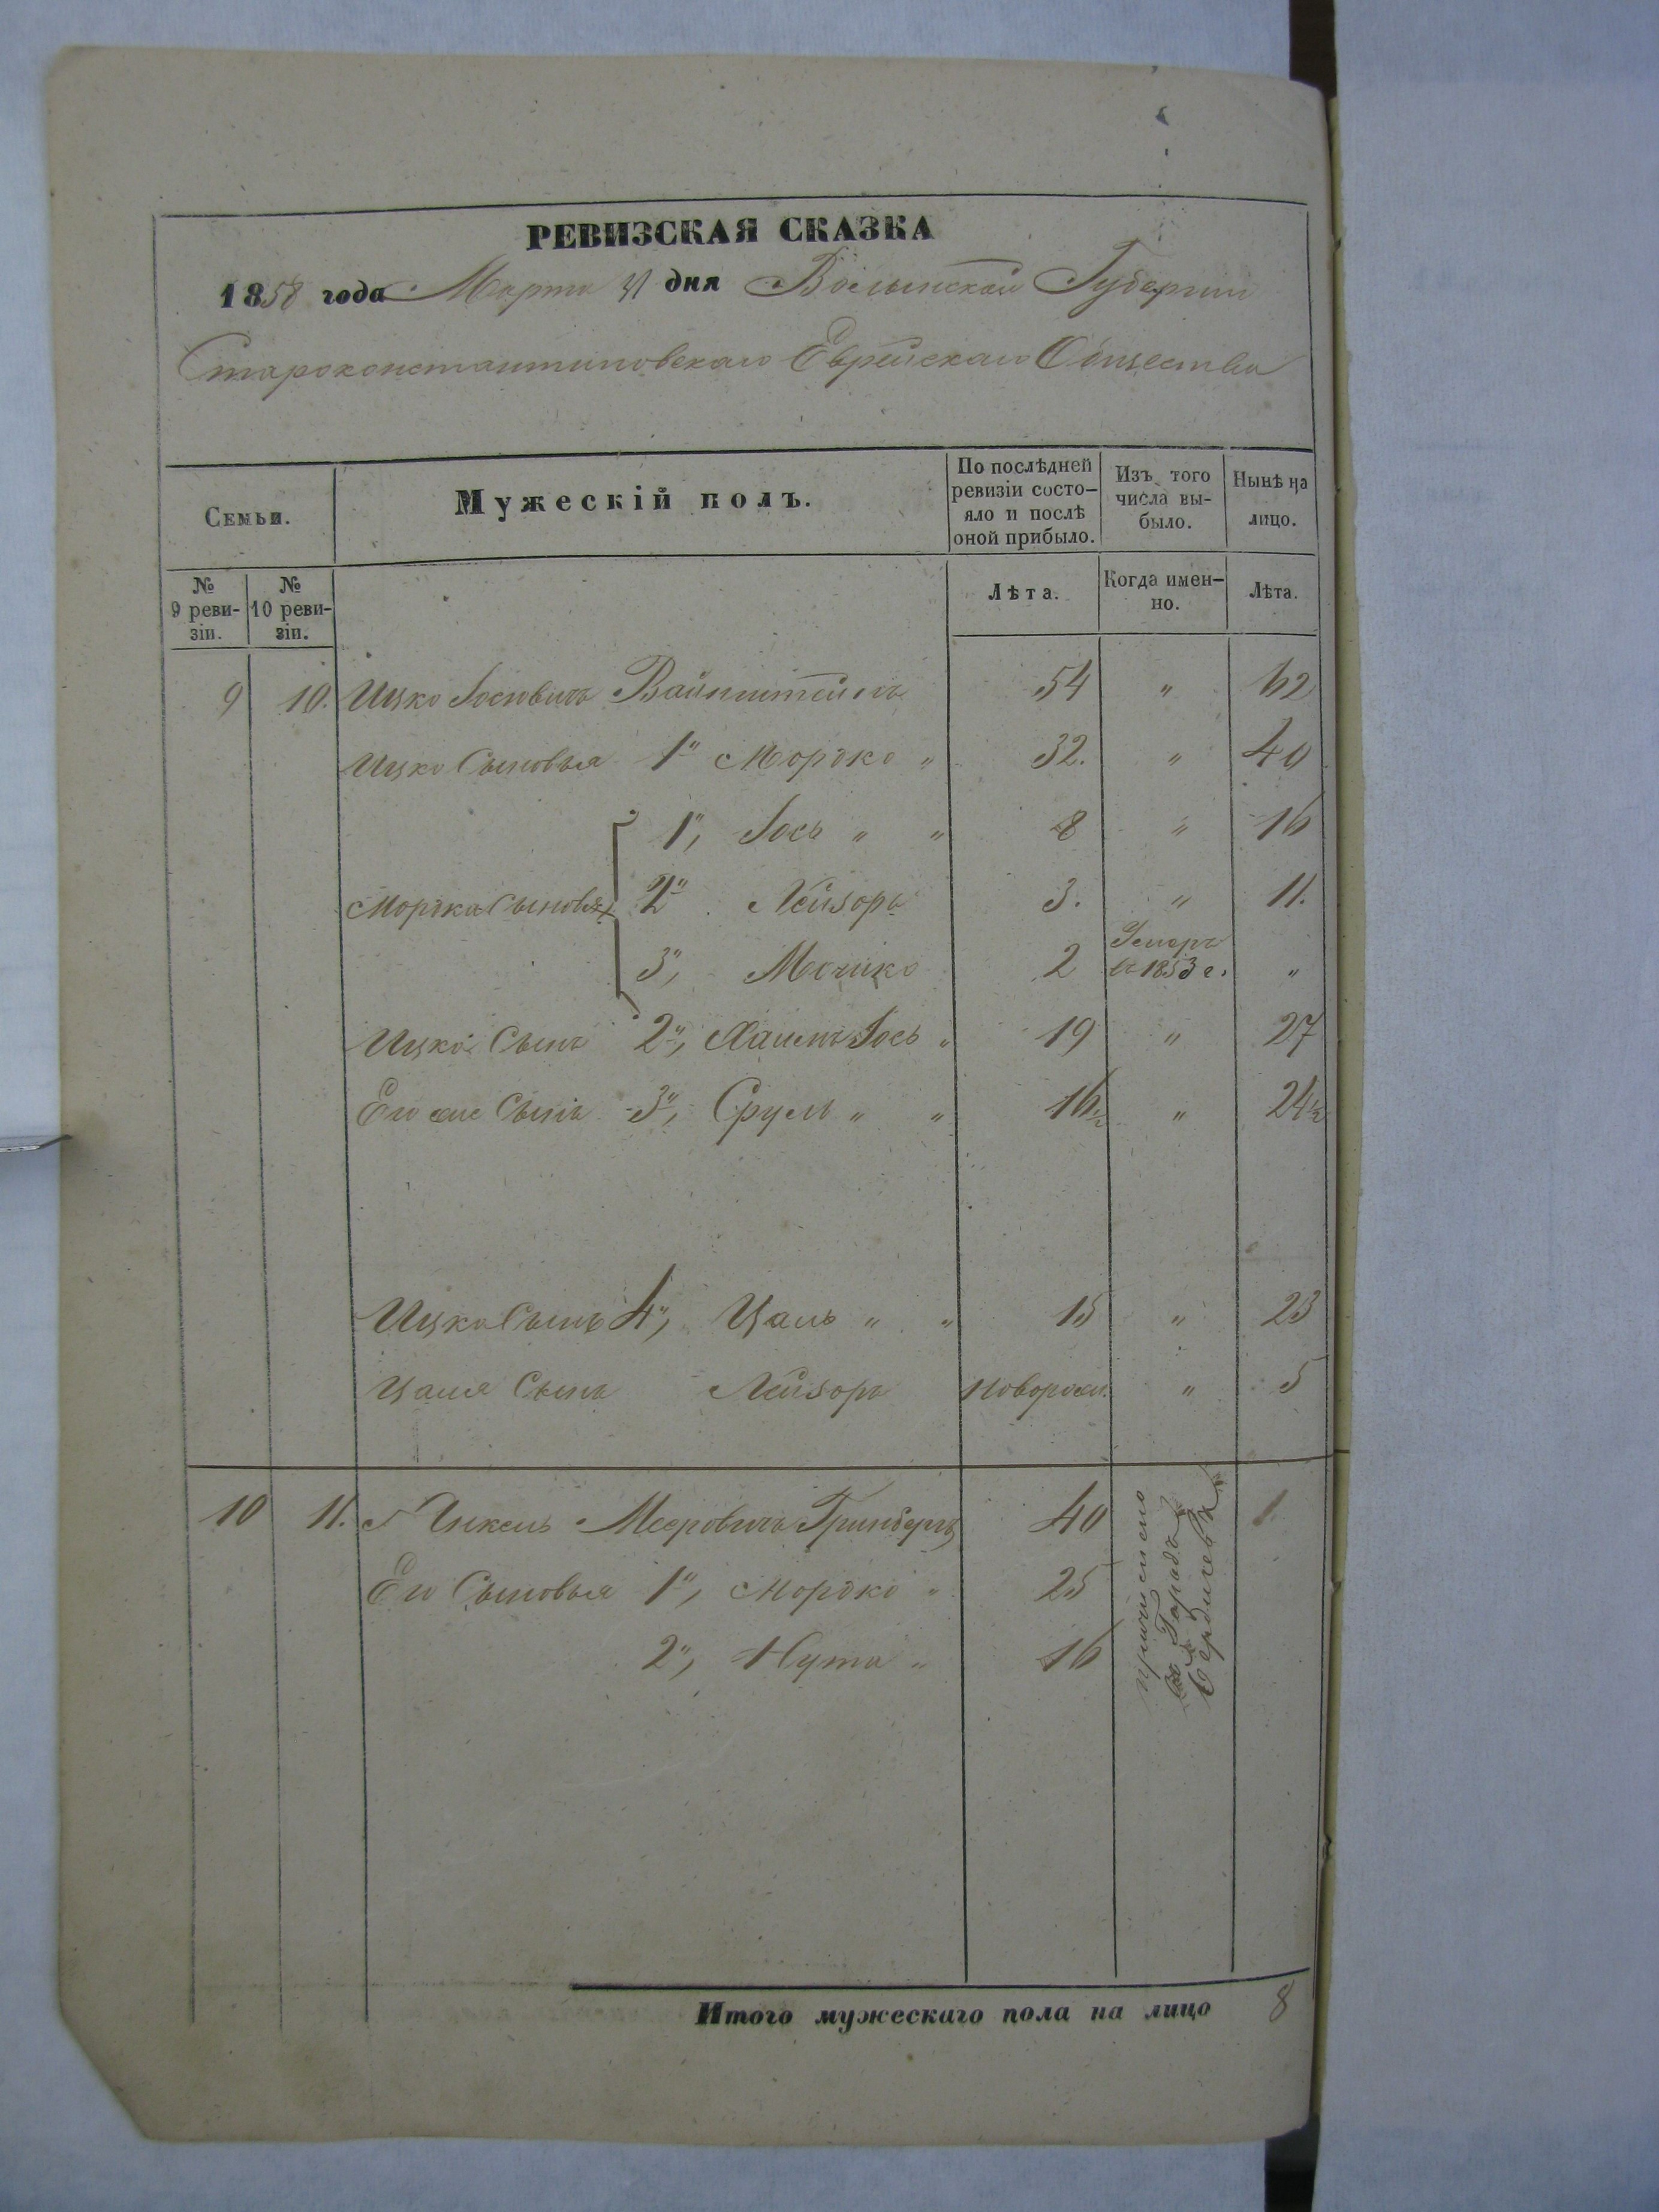 РЕВИЗСКАЯ СКАЗКА
1858 года Марта 31 дня Волынской Губернии
Староконстантиновскаго Еврейскаго Общества
Семьи. Мужескій полъ. По послѣдней ревизіи состо-яло и послѣ оной прибыло. Изъ того числа вы-было. Нынѣ на лицо.
№ 9 реви-зіи. № 10 реви-зіи. Лѣта. Когда имен-но. Лѣта.
9 10. Ицко Іосіовичъ Вайнштейнъ 54 " 62
Ицко Сыновья 1" Мордко " 32. " 40
1", Іось " " 8 " 16
Мордка Сыновья 2" Лейзоръ 3. " 11.
3", Мошко 2 Умеръ въ 1853 г. "
Ицко Сынъ 2", Хаимъ Іось " 19 " 27
Его же Сынъ 3", Сруль " " 16½ " 24½
Ицка Сынъ 4", Цаль " " 15 " 23
Цаля Сынъ Лейзоръ новорож. " 5
10 11. Янкель Мееровичъ Гринбергъ 40
Его Сыновья 1", Мордко " 25
2", Нута " 16
причислено
въ Городъ
Бердичевъ
Итого мужескаго пола на лицо 8